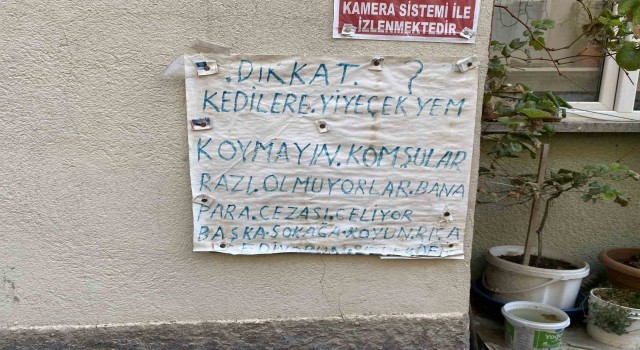 KAMERA SİSTEMİ İLE
İZLENMEKTEDİR
.DİKKAT. ?
KEDİLERE.YİYEÇEK YEM
KOYMAYIN.KOMŞULAR
RAZI.OLMUYORLAR.BANA
PARA.CEZASI.CELİYOR
BAŞKA.SOKAĞA.KOYUN.RİCA